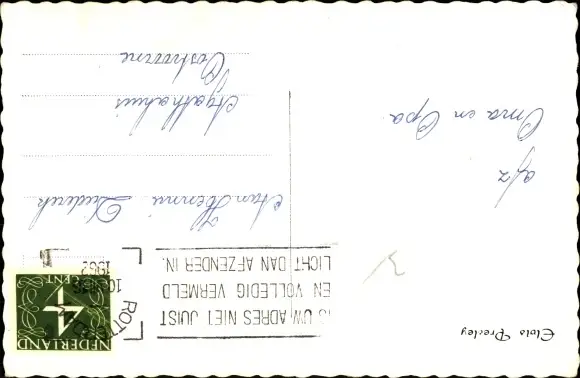 Elvis Presley
afz
Oma en Opa
IS UW ADRES NIET JUIST
EN VOLLEDIG VERMELD
LICHT DAN AFZENDER IN.
ROTTERDAM
1962
NEDERLAND
4
CENT
Aan Hennie Diederik
Agathahuis
Oostvoorne